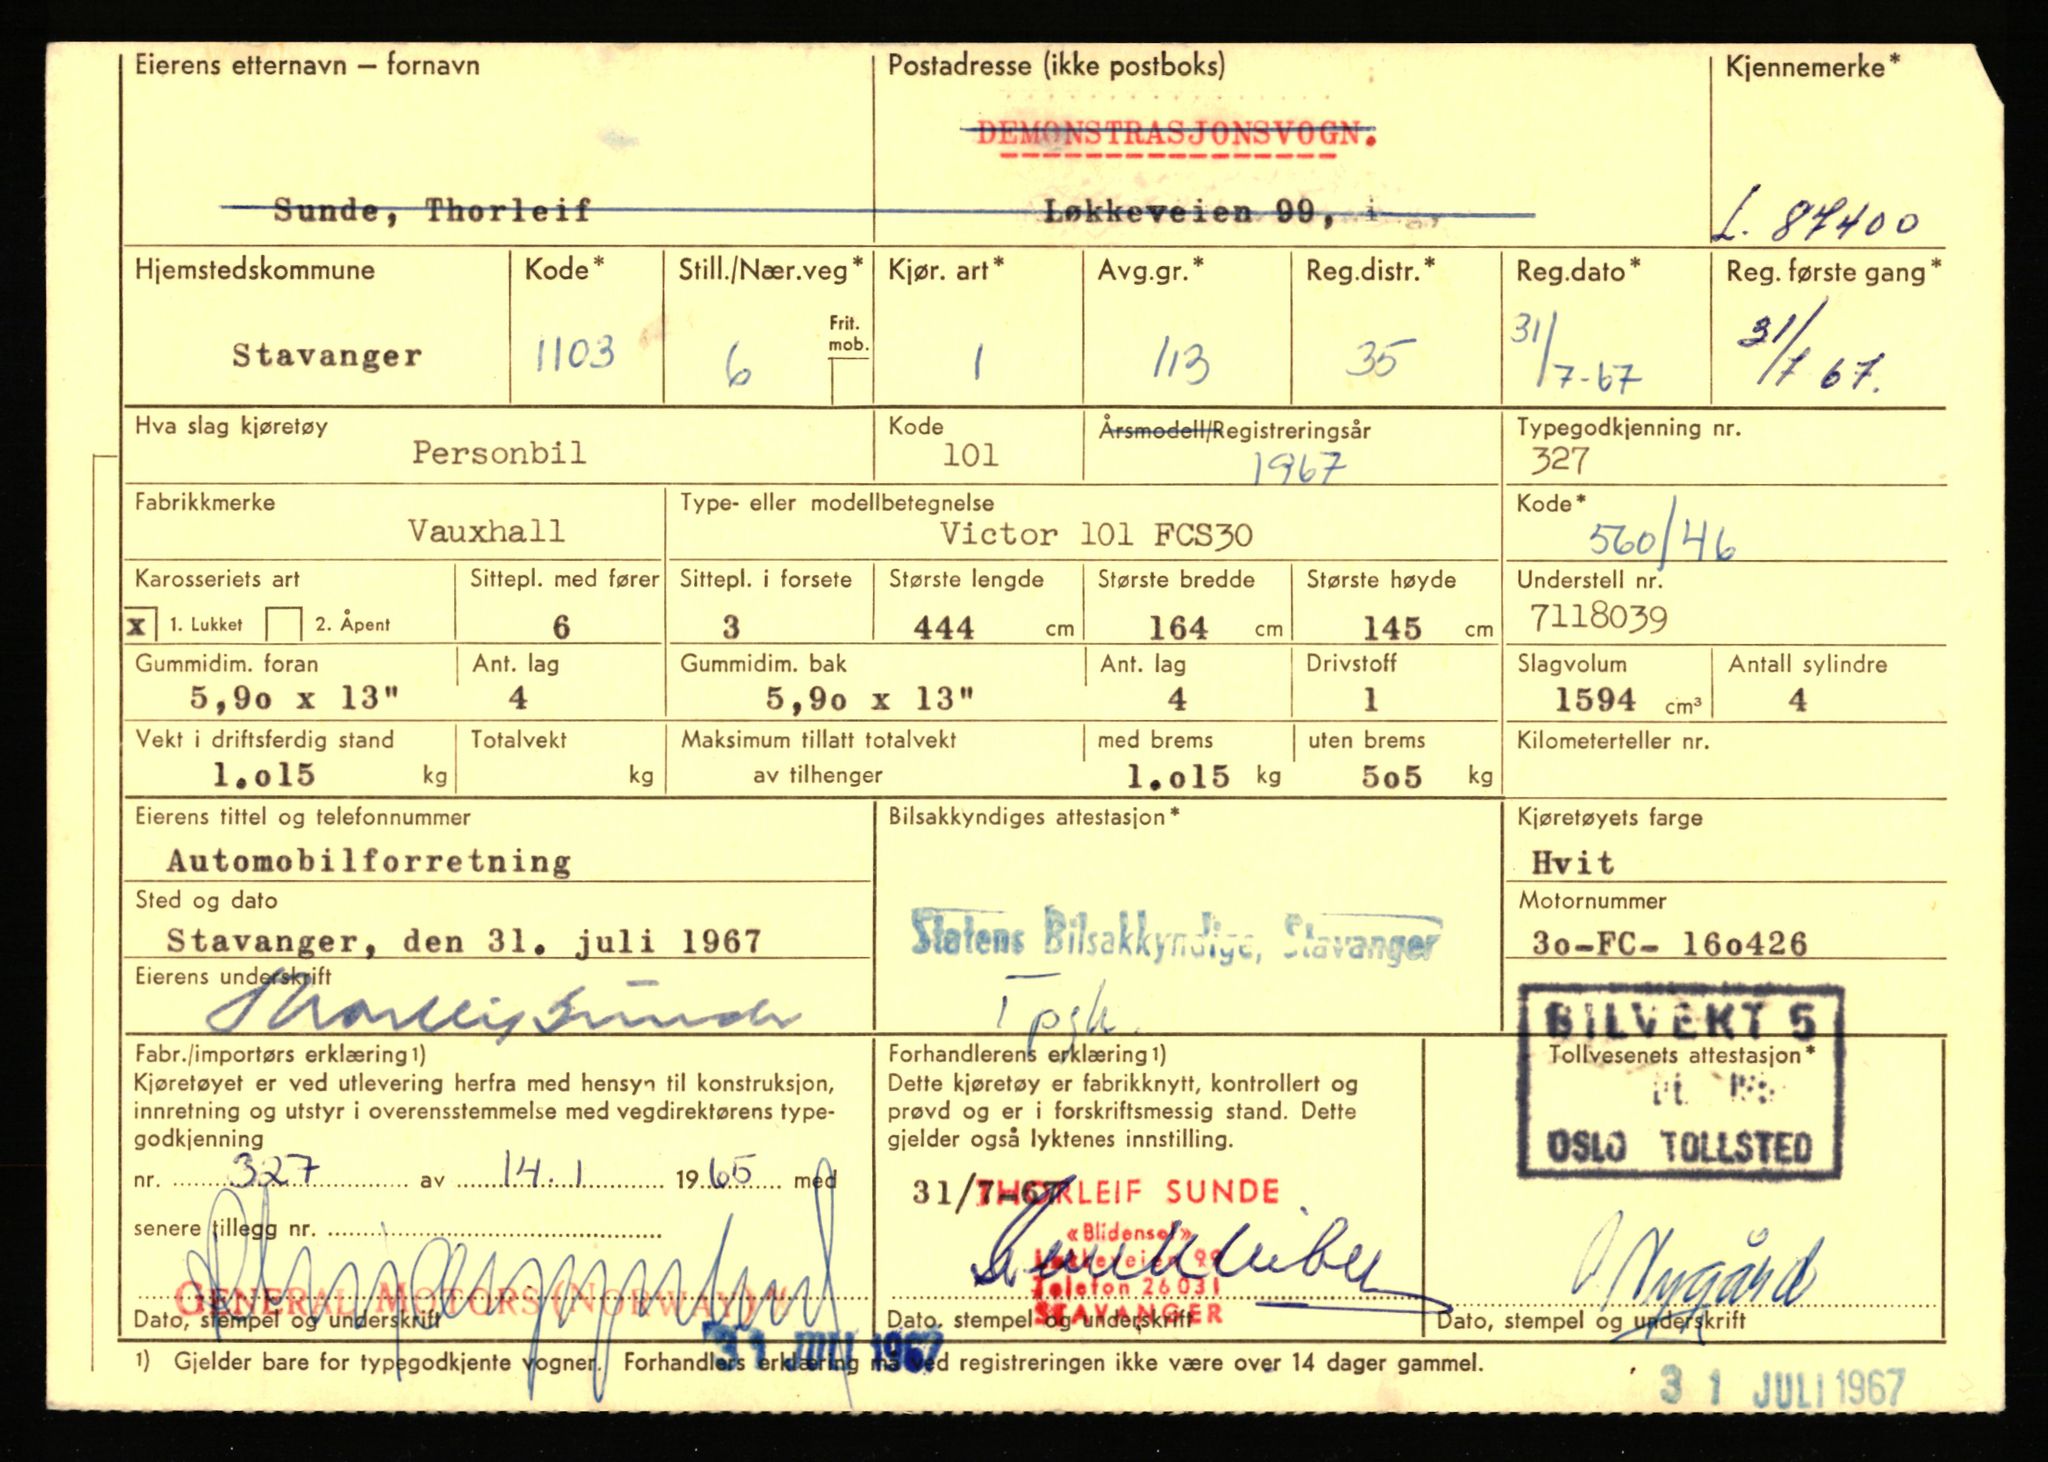 Eierens etternavn – fornavn
Postadresse (ikke postboks)
Kjennemerke*
DEMONSTRASJONSVOGN.
Sunde, Thorleif
Løkkeveien 99,
L. 87400
Hjemstedskommune
Kode*
Still./Nær.veg*
Kjør. art*
Avg.gr.*
Reg.distr.*
Reg.dato*
Reg. første gang*
Frit. mob.
Stavanger
1103
6
1
113
35
31/7-67
31/7 67.
Hva slag kjøretøy
Kode
Årsmodell/Registreringsår
Typegodkjenning nr.
Personbil
101
1967
327
Fabrikkmerke
Type- eller modellbetegnelse
Kode*
Vauxhall
Victor 101 FCS30
560/46
Karosseriets art
Sittepl. med fører
Sittepl. i forsete
Største lengde
Største bredde
Største høyde
Understell nr.
x 1. Lukket 2. Åpent
6
3
444 cm
164 cm
145 cm
7118039
Gummidim. foran
Ant. lag
Gummidim. bak
Ant. lag
Drivstoff
Slagvolum
Antall sylindre
5,9o x 13"
4
5,9o x 13"
4
1
1594 cm³
4
Vekt i driftsferdig stand
Totalvekt
Maksimum tillatt totalvekt
med brems
uten brems
Kilometerteller nr.
1.o15 kg
kg
av tilhenger
1.o15 kg
5o5 kg
Eierens tittel og telefonnummer
Bilsakkyndiges attestasjon*
Kjøretøyets farge
Automobilforretning
Hvit
Sted og dato
Motornummer
Stavanger, den 31. juli 1967
Statens Bilsakkyndige, Stavanger
3o-FC- 16o426
Eierens underskrift
Thorleif Sunde
BILVEKT 5
Fabr./importørs erklæring 1)
Forhandlerens erklæring 1)
Tollvesenets attestasjon*
Kjøretøyet er ved utlevering herfra med hensyn til konstruksjon,
innretning og utstyr i overensstemmelse med vegdirektørens type-
godkjenning
nr. 327 av 14.1 1965 med
senere tillegg nr.
Dette kjøretøy er fabrikknytt, kontrollert og
prøvd og er i forskriftsmessig stand. Dette
gjelder også lyktenes innstilling.
OSLO TOLLSTED
31/7-67
THORLEIF SUNDE
«Blidensol»
Løkkeveien 99
Telefon 26031
STAVANGER
Nygård
GENERAL MOTORS (NORWAY)
Dato, stempel og underskrift
Dato, stempel og underskrift
Dato, stempel og underskrift
31 JULI 1967
1) Gjelder bare for typegodkjente vogner. Forhandlers erklæring må ved registreringen ikke være over 14 dager gammel.
31 JULI 1967